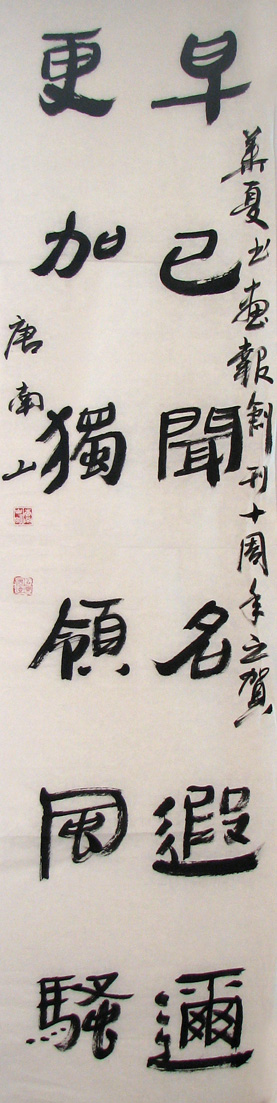 華夏书画報創刊十周年之贺
早已聞名遐邇
更加獨領風騷
唐南山